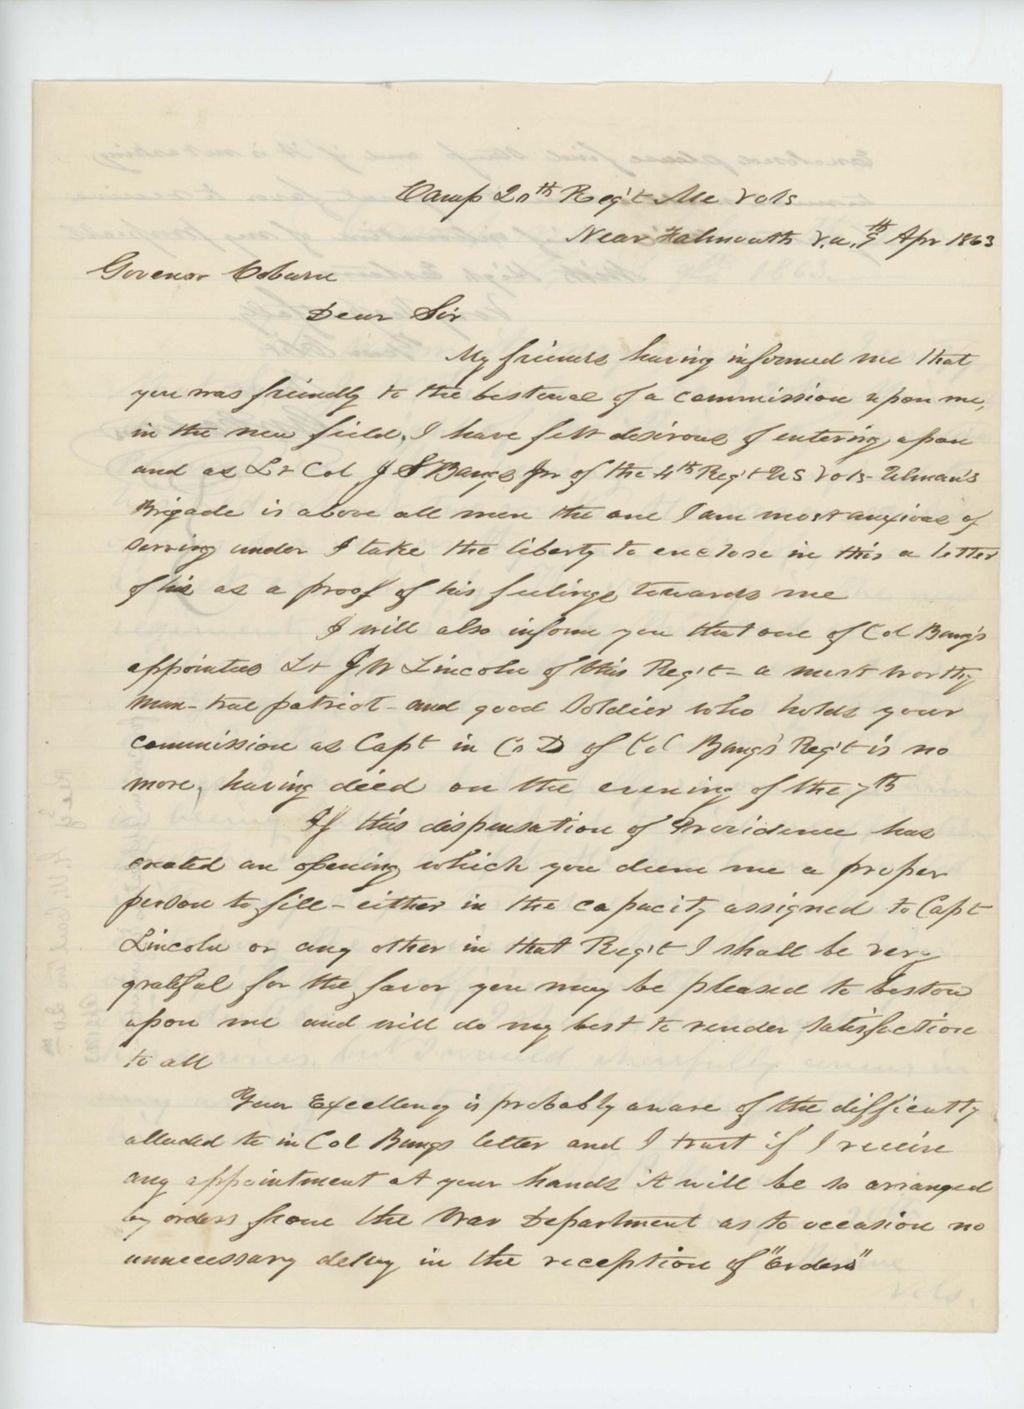 Camp 20th Reg't Me Vols
Near Falmouth V.a. 9th Apr 1863
Govenor Coburn
Dear Sir
My friends having informed me that
you was friendly to the bestowal of a commission upon me,
in the new field, I have felt desirous of entering upon
and as Lt Col J S Bangs Jr of the 4th Reg't US Vols - Ulman's
Brigade is above all men the one I am most anxious of
serving under I take the liberty to enclose in this a letter
of his as a proof of his feelings towards me
I will also inform you that one of Col Bang's
appointees Lt J W Lincoln of this Reg't - a most worthy
man - true patriot - and good Soldier who holds your
commission as Capt in Co D of Col Bang's Reg't is no
more, having died on the evening of the 7th
If this dispensation of Providence has
created an opening which you deem me a proper
person to fill - either in the capacity assigned to Capt
Lincoln or any other in that Reg't I shall be very
grateful for the favor you may be pleased to bestow
upon me and will do my best to render satisfaction
to all
Your Excellency is probably aware of the difficulty
alluded to in Col Bangs letter and I trust if I receive
any appointment at your hands it will be so arranged
by orders from the War Department as to occasion no
unnecessary delay in the reception of "Orders"